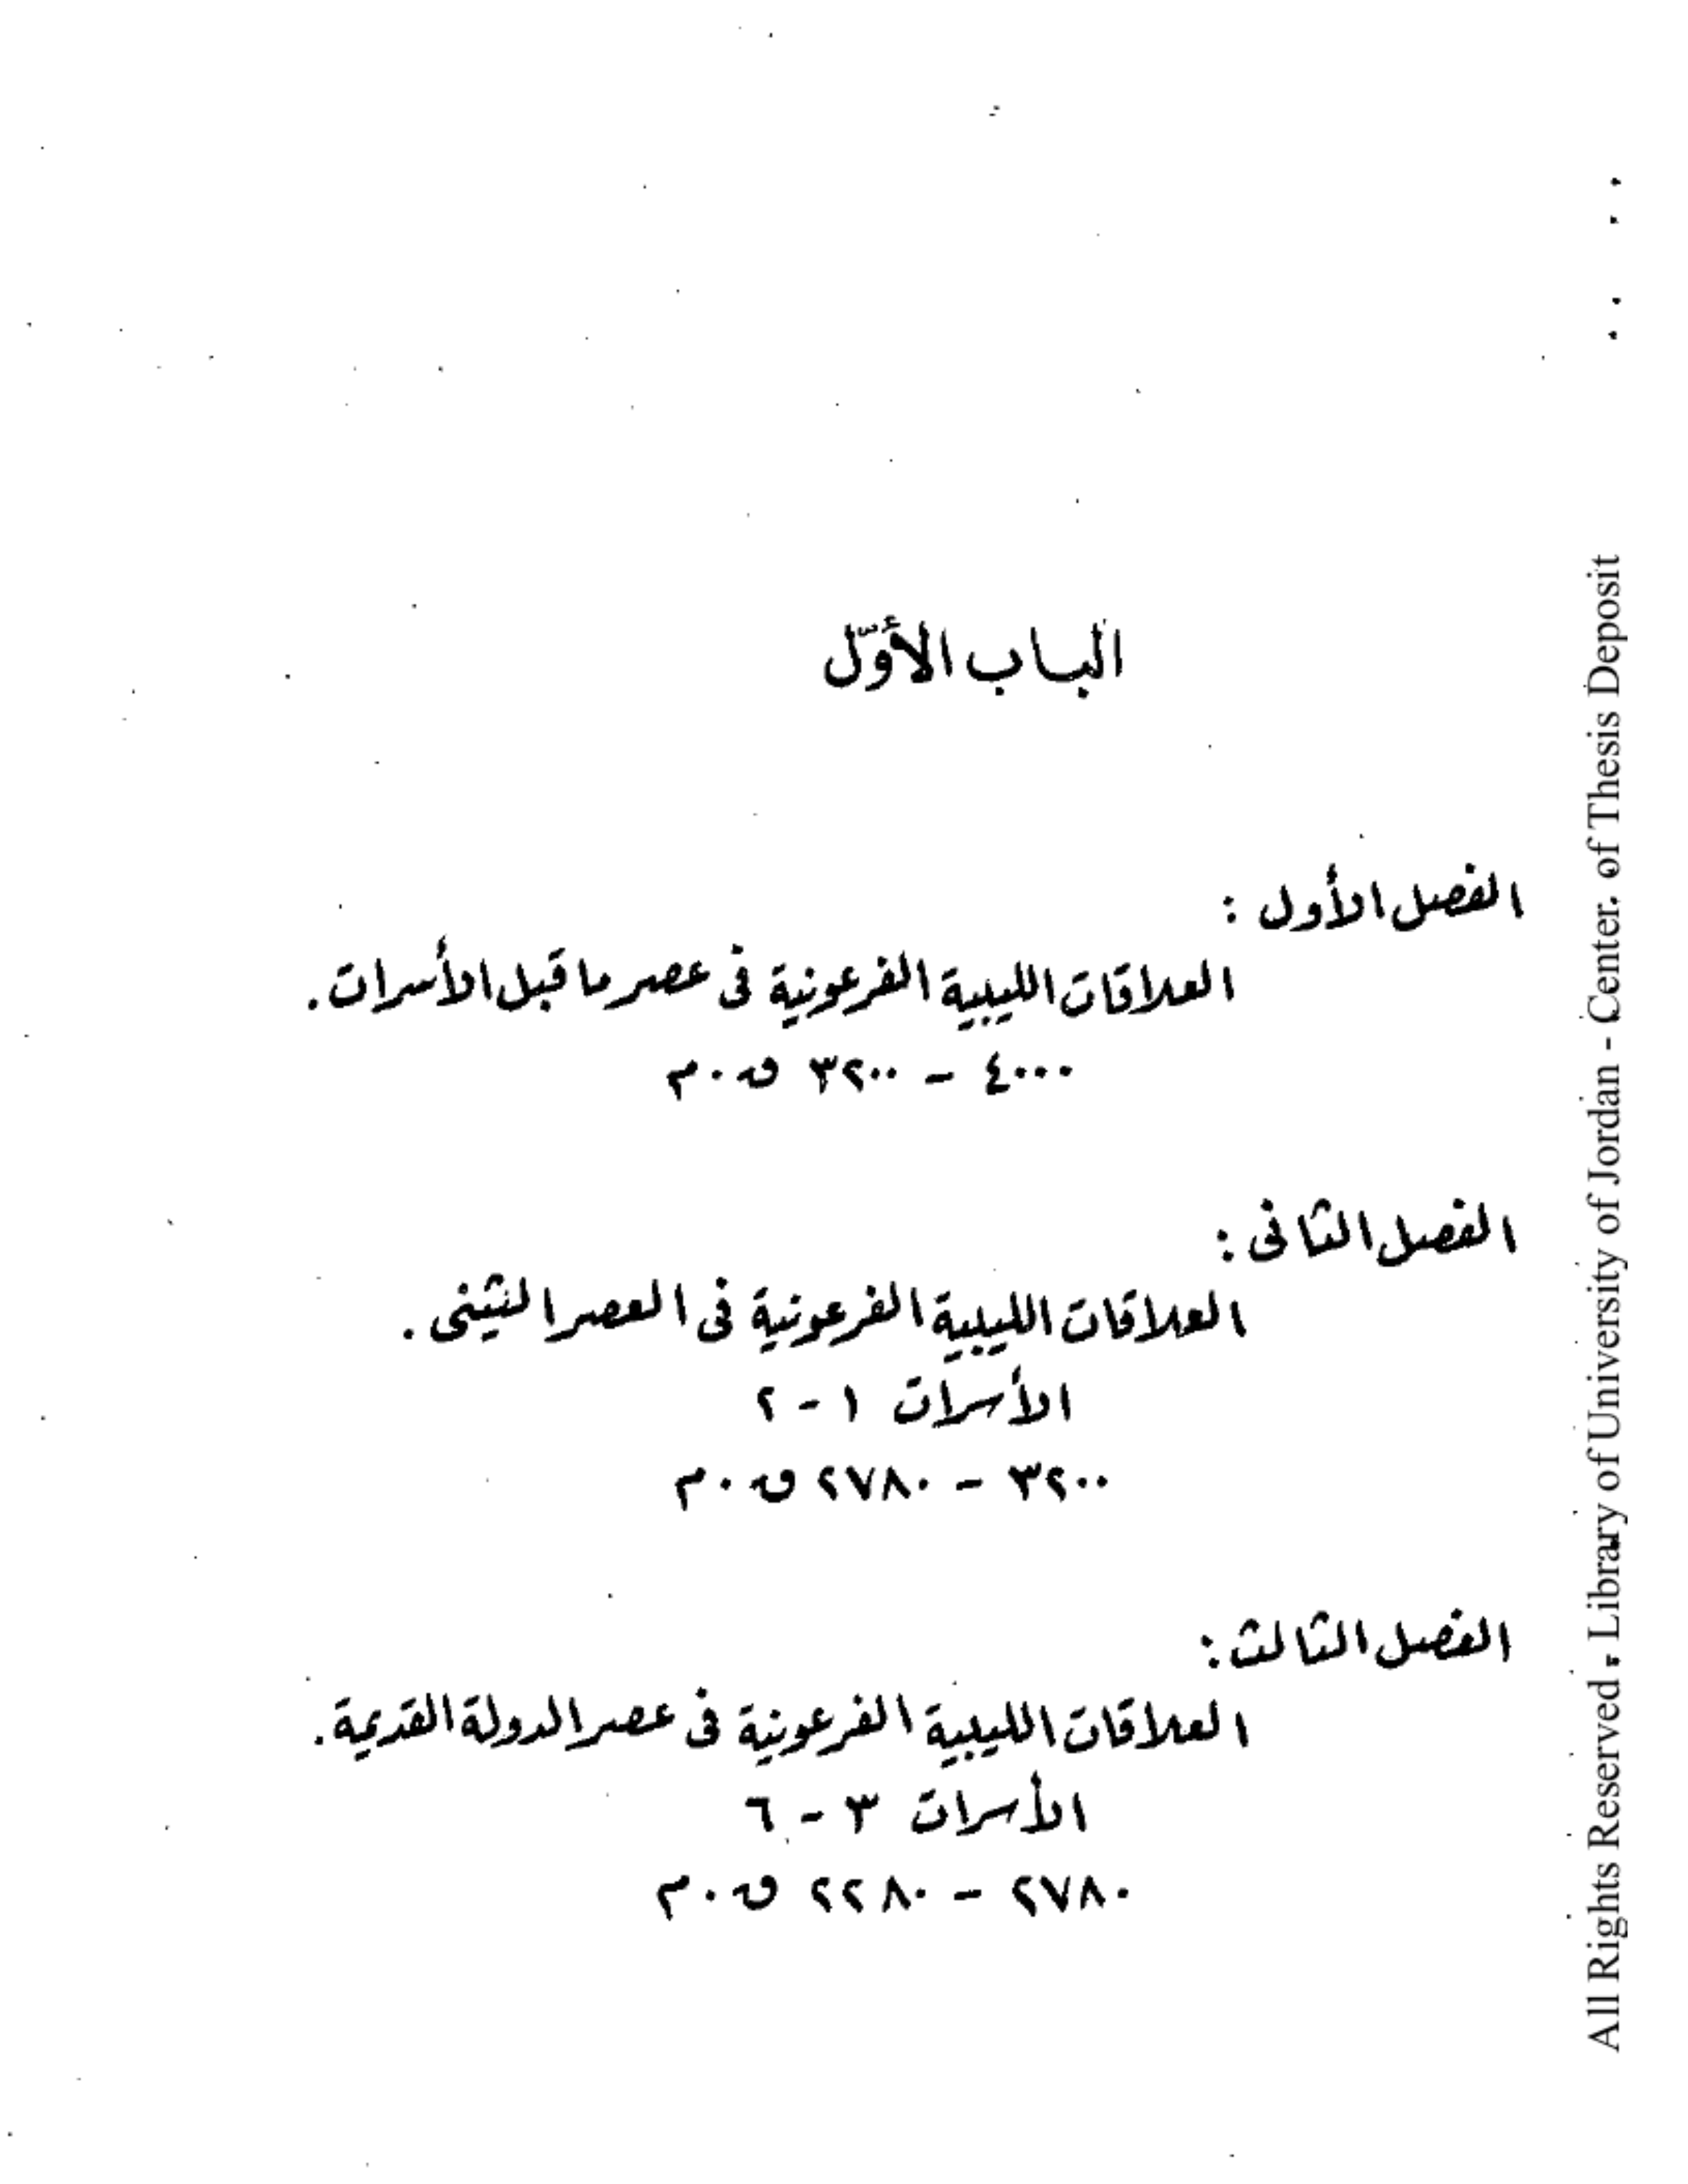 الباب الأوّل
الفصل الأول :
العلاقات الليبية الفرعونية فى عصر ما قبل الأسرات .
٤٠٠٠ - ٣٢٠٠ ق٠م
الفصل الثانى :
العلاقات الليبية الفرعونية فى العصر الثينى .
الأسرات ١ - ٢
٣٢٠٠ - ٢٧٨٠ ق٠م
الفصل الثالث :
العلاقات الليبية الفرعونية فى عصر الدولة القديمة .
الأسرات ٣ - ٦
٢٧٨٠ - ٢٢٨٠ ق٠م
All Rights Reserved - Library of University of Jordan - Center of Thesis Deposit